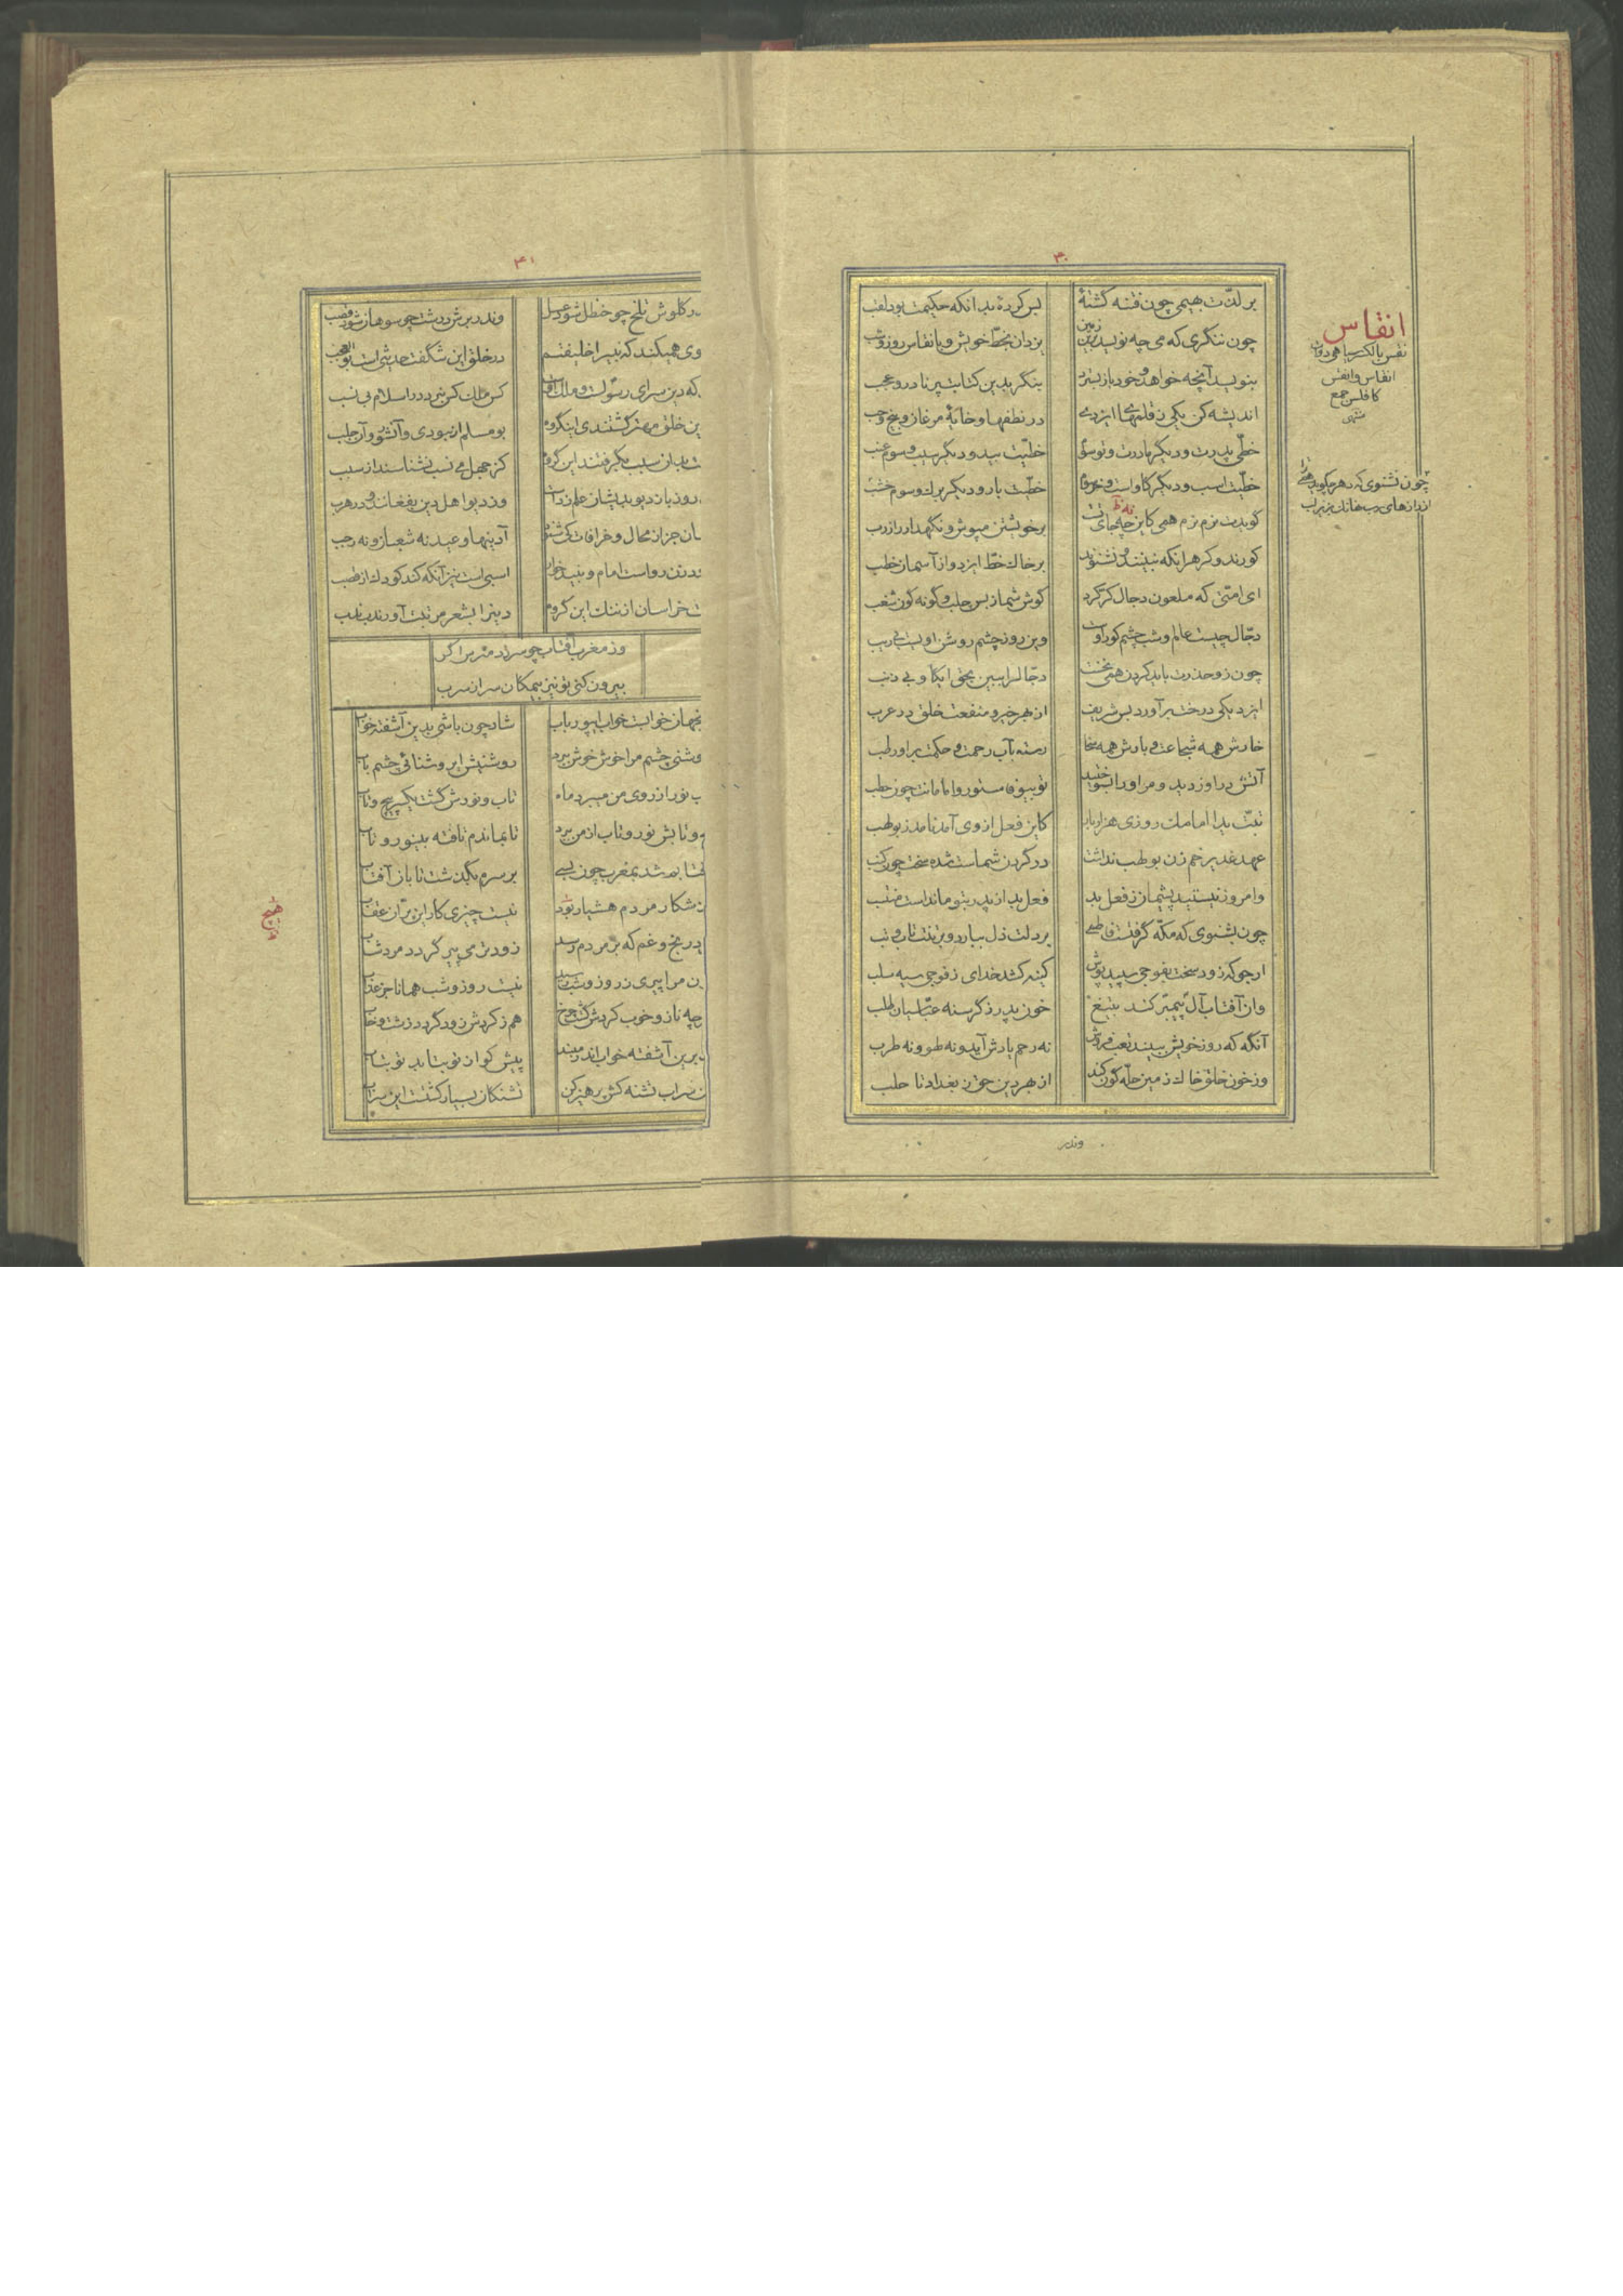 ۳۰
بر لذّت بهیمی چون فتنه گشتهٔ
بس کردهٔ بدانکه حکیمت بود لقب
چون ننگری که می چه نویسد برین زمین
یزدان بخطّ خویش و بانقاس روز و شب
بنویسد آنچه خواهد و خود باز بسترد
بنگر بدین کتابت پر نادر و عجب
اندیشه کن یکی ز قلمهای ایزدی
در نطفها و خایهٔ مرغان و بیخ و حب
خطّی پدرت و دیگر مادرت و تو سوّم
خطّیت بید و دیگر سیب و سوم عنب
خطّیت اسب و دیگر گاو است و خر سوم
خطّیت بارور دیگر برگ و سوم خشب
گویدت نرم نرم همی کاین چه جای تست
بر خویشتن مپوش و نگهدار راز رب
کورند و کر هر آنکه نبینند و نشنوند
بر خاک خطّ ایزد و از آسمان خطب
ای امّتی که ملعون دجّال کر کرد
گوش شما ز بس جلب و گونه گون شغب
دجّال چیست عالم و شب چشم کور اوست
وین روز چشم روشن اویست بی ریب
چون زو حذرت باید کردن همی نخست
دجّال را ببین بحق ای گاو بی ذنب
ایزد یکی درخت برآورد بس شریف
از بهر خیر و منفعت خلق در عرب
خارش همه شجاعت و بارش همه سخا
رسته بآب رحمت و حکمت برو رطب
آتش در او زدید و مر او را بسوختید
تو بیوفا ستور و امامانت چون حطب
تبّت یدا امامک روزی هزار بار
کاین فعل از وی آمد نامد ز بولهب
عهد غدیر خم زن بولهب نداشت
در گردن شماست شده سخت چون کنب
وامروز نیستید پشیمان ز فعل بد
فعل بد از پدر بتو مانداست منتسب
چون بشنوی که مکّه گرفتست فاطمی
بر دلت ذل ببارد و بر تنت تاب و تب
ارجو که زود سخت بفوجی سپید پوش
کینه کشد خدای ز فوجی سیه سلب
وان آفتاب آل پیمبر کند بتیغ
خون پدر ز گرسنه عبّاسیان طلب
آنگه که روز خویش ببیند لقب فروش
نه رحم یادش آید و نه طور و نه طرب
وز خون خلق خاک زمین حلّه گون کند
از بهر دین حق ز بغداد تا حلب
وندر
انقاس
نقس بالکسر سیاهی دوات
انقاس و انقس
کافلس جمع
منتهی
چون نشنوی که دهر چگوید همی ترا
از رازهای رب نهانک بزیر لب
۳۱
در گلوش تلخ چو حنظل شود عسل
وندر برش درشت چو سوهان شود قصب
وی همیکند که نبی را خلیفتم
در خلق این شگفت حدیثی است بوالعجب
که دین سرای رسولست و ملک اوست
کس ملک کس نبرد در اسلام بی نسب
ین خلق مهتر گشتندی اینگروه
بومسلم ار نبودی و آن شور و آن جلب
ت باز سبب بگرفتند این گروه
کز جهل می نسب نشناسند از سبب
روزباز دیو بدیشان علم زدست
وز دیو اهل دین بفغانند و در هرب
سان جز از محال و خرافات کی شنود
آدینها و عید نه شعبان و نه رجب
درتن رواست امام و نبید خوار
اسپی است نیز آنکه کند کودک از قصب
ت خراسان از ننگ این گروه
دین را بشعر مرتبت آورند و ندب
وز مغرب آفتاب چو سر زد مترس اگر
بیرون کنی تو نیز بیمگان سر از سرب
نجهان خوابست خواب ای پور باب
شاد چون باشی بدین آشفته خواب
وشنی چشم مرا خوش خوش ببرد
روشنیش ای روشنائی چشم باب
ب نور از روی من میبرد ماه
تاب و نورش گشت یکسر پیچ و تاب
و تابش نور و تاب از من ببرد
تا بماندم تافته بینور و تاب
فتابم شد بمغرب چون بسی
بر سرم بگذشت تابان آفتاب
ز شکار مردم هشیار بود
نیست چیزی کار این پرّان عقاب
ز رنج و غم که بر مردم رسد
زودتر می پیر گردد مرد شاب
ن مرا پیری ز روز و شب رسید
نیست روز و شب همانا جز عذاب
چه ناز و خوب کردش گشت چرخ
هم ز گردش زود گردد زشت و خاب
برین آشفته خواب اندر مبند
پیش کو از تو بتابد تو بتاب
ن سراب تشنه کش پرهیز کن
تشنگان بسیار کشتست این سراب
هیچ